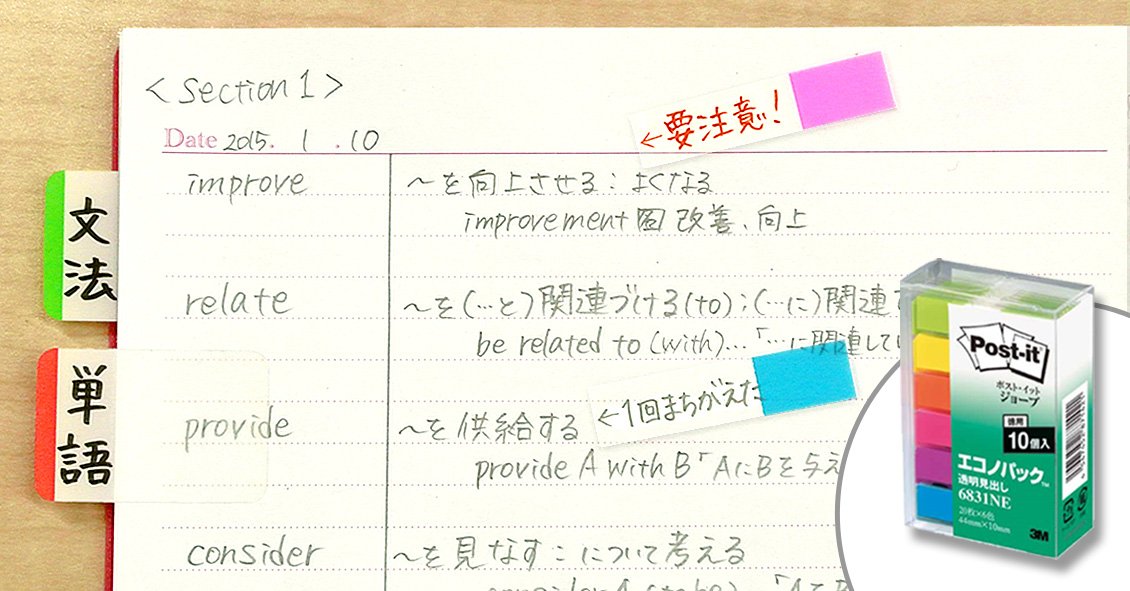 <Section 1>
←要注意!
Date 2015. 1 .10
improve
〜を向上させる:よくなる
improvement 図 改善、向上
文法
relate
〜を(…と)関連づける(to):(…に)関連
be related to (with)…「…に関連して
単語
←1回まちがえた
provide
〜を供給する
provide A with B「AにBを与え
consider
〜を見なす:について考える
Post-it
ポスト・イット
ジョーブ
徳用
10個入
エコノパック™
透明見出し
6831NE
20枚×6色
44mm×10mm
3M